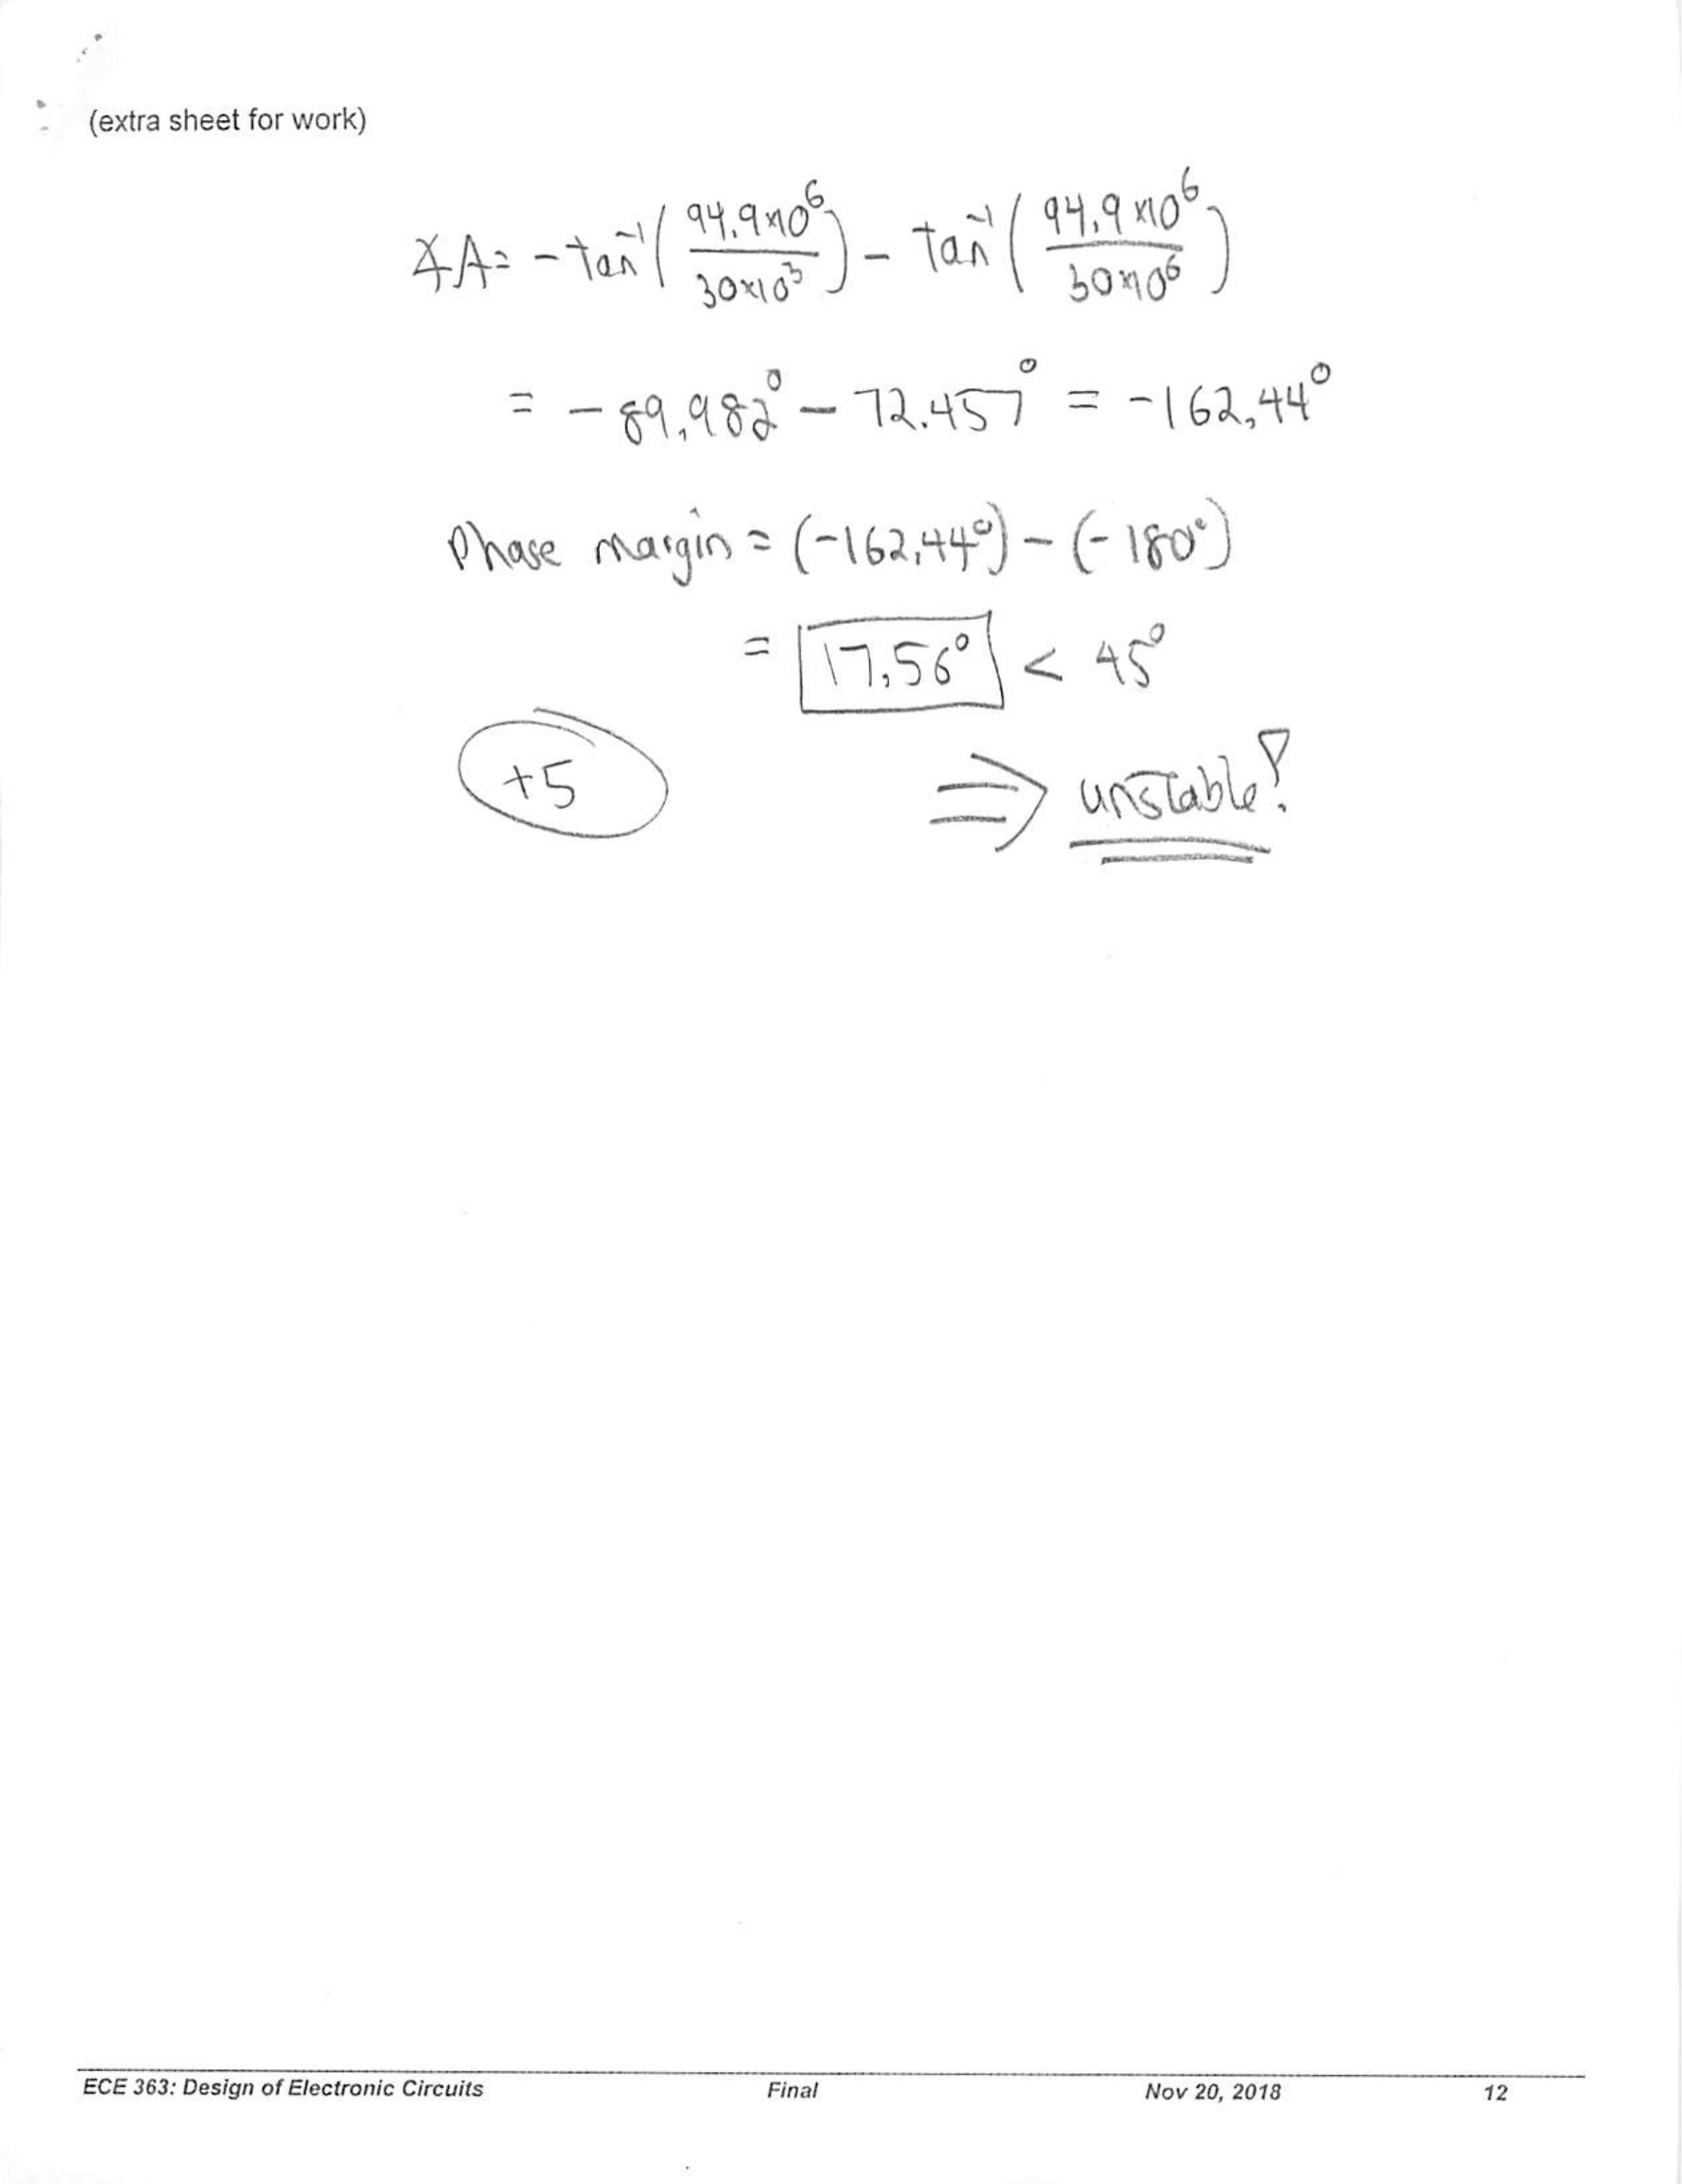 (extra sheet for work)
∡A = -tan⁻¹(94.9×10⁶/30×10³) - tan⁻¹(94.9×10⁶/30×10⁶)
= -89.982° - 72.457° = -162.44°
Phase margin = (-162.44°) - (-180°)
= 17.56° < 45°
+5
⇒ unstable!
ECE 363: Design of Electronic Circuits Final Nov 20, 2018 12